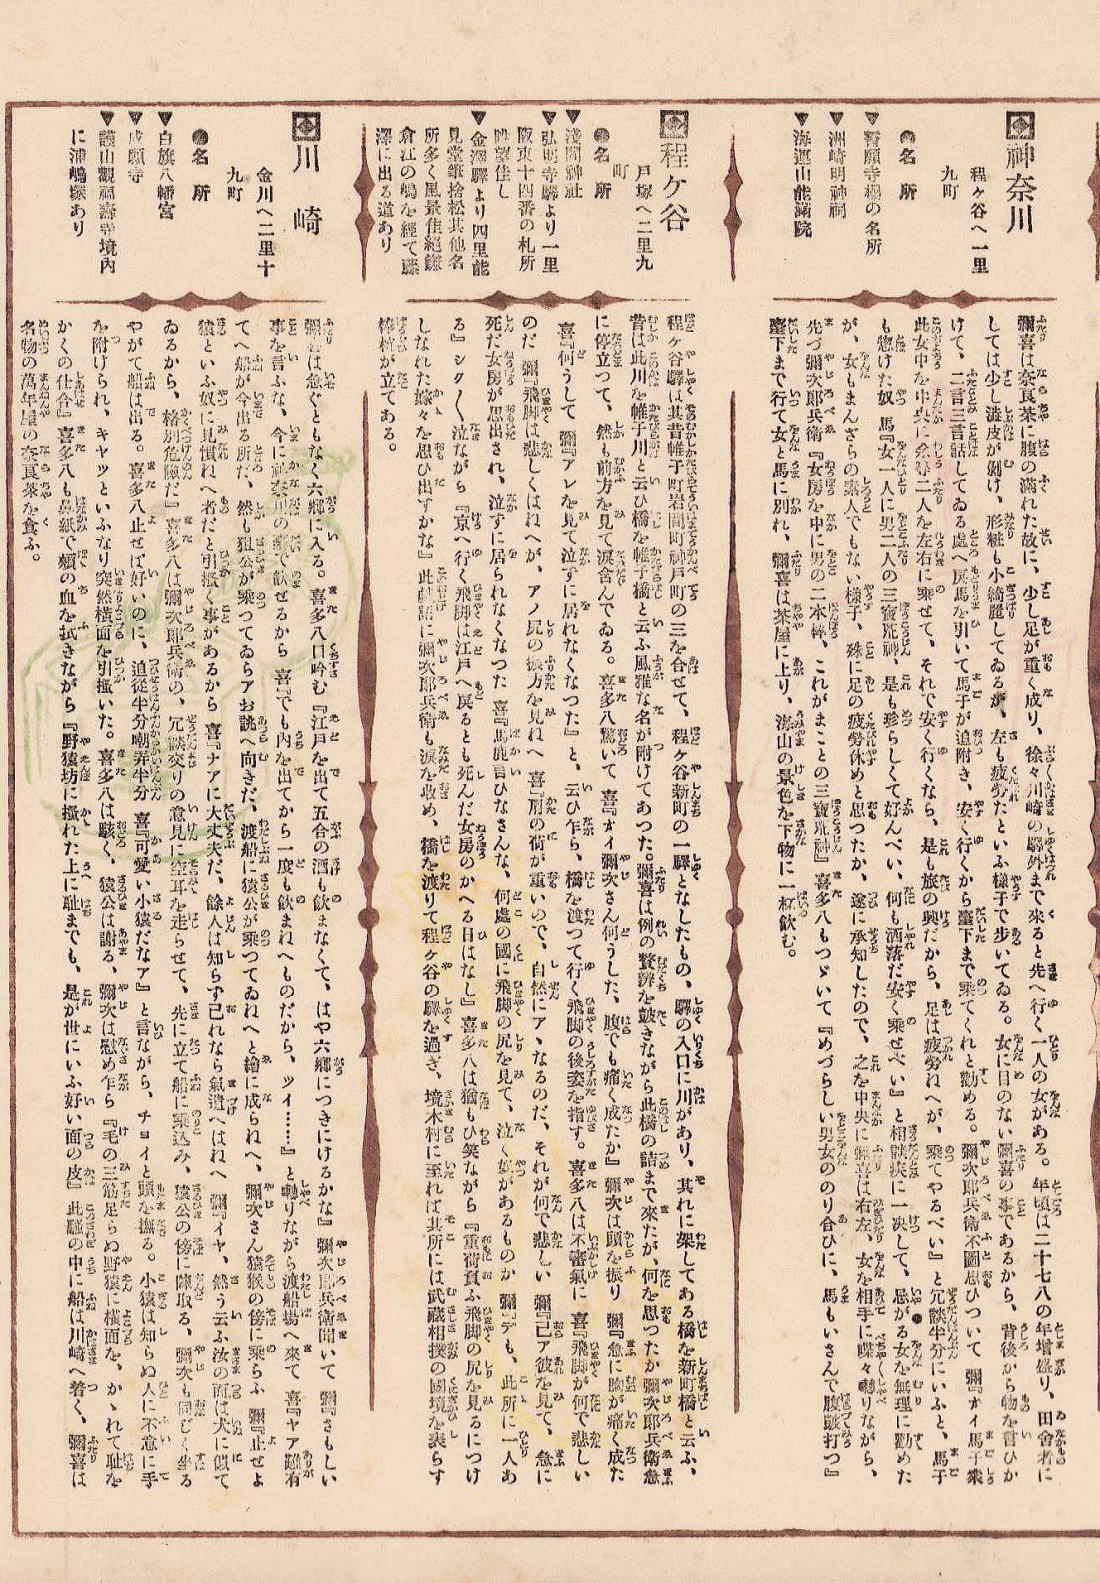 神奈川
程ケ谷へ一里
九町
●名所
▼誓願寺櫻の名所
▼洲崎明神祠
▼海運山能滿院
彌喜は奈良茶に腹の滿れた故に、少し足が重く成り、徐々川崎の驛外まで來ると先へ行く一人の女がある。年頃は二十七八の年增盛り、田舍者に
しては少し澁皮が剝け、形粧も小綺麗してゐるが、左も疲勞たといふ樣子で步いてゐる。女に目のない彌喜の事であるから、背後から物を言ひか
けて、二言三言話してゐる處へ戾馬を引いて馬子が追附き、安く行くから臺下まで乘てくれと勸める。彌次郎兵衛不圖思ひついて 彌『オイ馬子衆
此女中を中央に余等二人を左右に乘せて、それで安く行くなら、是も旅の興だから、足は疲勞ねへが、乘てやるべい』と冗談半分にいふと、馬子
も惚けた奴 馬『女一人に男二人の三寶荒神、是も珍らしくて好んべい、何も洒落だ安く乘せべい』と相談疾に一决して、忌がる女を無理に勸めた
が、女もまんざらの素人でもない樣子、殊に足の疲勞休めと思つたか、遂に承知したので、之を中央に彌喜は右左、女を相手に喋々囀りながら、
先づ彌次郎兵衛『女房を中に男の二本棒、これがまことの三寶荒神』喜多八もつゞいて『めづらしい男女ののり合ひに、馬もいさんで腹皷打つ』
臺下まで行て女と馬に別れ、彌喜は茶屋に上り、海山の景色を下物に一杯飮む。
程ケ谷
戸塚へ二里九
町
●名所
▼淺間神社
▼弘明寺驛より一里
阪東十四番の札所
眺望佳し
▼金澤驛より四里能
見堂筆捨松其他名
所多く風景佳絕鎌
倉江の嶋を經て藤
澤に出る道あり
程ケ谷驛は其昔帷子町岩間町神戸町の三を合せて、程ケ谷新町の一驛となしたもの、驛の入口に川があり、其れに架してある橋を新町橋と云ふ、
昔は此川を帷子川と云ひ橋を帷子橋と云ふ風雅な名が附けてあつた。彌喜は例の贅辨を皷きながら此橋の詰まで來たが、何を思つたか彌次郎兵衛急
に停立つて、然も前方を見て淚含んでゐる。喜多八驚いて 喜『オイ彌次さん何うした、腹でも痛く成たか』彌次は頭を振り 彌『急に胸が痛く成た
喜『何うして 彌『アレを見て泣ずに居れなくなつた』と、云ひ乍ら、橋を渡つて行く飛脚の後姿を指す。喜多八は不審氣に 喜『飛脚が何で悲しい
のだ 彌『飛脚は悲しくはねへが、アノ尻の振方を見ねへ 喜『肩の荷が重いので、自然にアヽなるのだ、それが何で悲しい 彌『己ア彼を見て、急に
死だ女房が思出され、泣ずに居られなくなつた 喜『馬鹿言ひなさんな、何處の國に飛脚の尻を見て、泣く奴があるものか 彌『デも、此所に一人あ
る』シク〳〵泣ながら『京へ行く飛脚は江戸へ戾るとも死んだ女房のかへる日はなし』喜多八は猶もひ笑ながら『重荷負ふ飛脚の尻を見るにつけ
しなれた嫁々を思ひ出すかな』此戯謔に彌次郎兵衛も淚を收め、橋を渡りて程ケ谷の驛を過ぎ、境木村に至れば其所には武藏相摸の國境を表らす
棒杭が立てある。
川崎
金川へ二里十
九町
●名所
▼白旗八幡宮
▼成願寺
▼護山觀福壽寺境內
に浦嶋塚あり
彌喜は急ぐともなく六鄕に入る。喜多八口吟む『江戸を出て五合の酒も飮まなくて、はや六鄕につきにけるかな』彌次郎兵衛聞いて 彌『さもしい
事を言ふな、今に神奈川の臺で飮せるから 喜『でも內を出てから一度も飮まねへものだから、ツイ……』と囀りながら渡船場へ來て 喜『ヤア難有
てへ船が今出る所だ、然も狙公が乘つてゐらアお誂へ向きだ、渡船に猿公が乘つてゐねへと繪に成られねへ、彌次さん猿猴の傍に乘らふ 彌『止せよ
猿といふ奴に見慣れへ者だと引搔く事があるから 喜『ナアに大丈夫だ、餘人は知らず己れなら氣遣へはねへ 彌『イヤ、然う云ふ汝の面は犬に似て
ゐるから、格別危險だ』喜多八は彌次郎兵衛の、冗談交りの意見に空耳を走らせて、先に立て船に乘込み、猿公の傍に陣取る、彌次も同じく坐る
やがて船は出る。喜多八止せば好いのに、追從半分嘲弄半分 喜『可愛い小猿だなア』と言ながら、チヨイと頭を撫る。小猿は知らぬ人に不意に手
を附けられ、キヤッといふなり突然橫面を引搔いた。喜多八は駭く、猿公は謝る、彌次は慰め乍ら『毛の三筋足らぬ野猿に橫面を、かゝれて耻を
かくの仕合』喜多八も鼻紙で頰の血を拭きながら『野猿坊に搔れた上に耻までも、是が世にいふ好い面の皮』此騷の中に船は川崎へ着く、彌喜は
名物の萬年屋の奈良茶を食ふ。